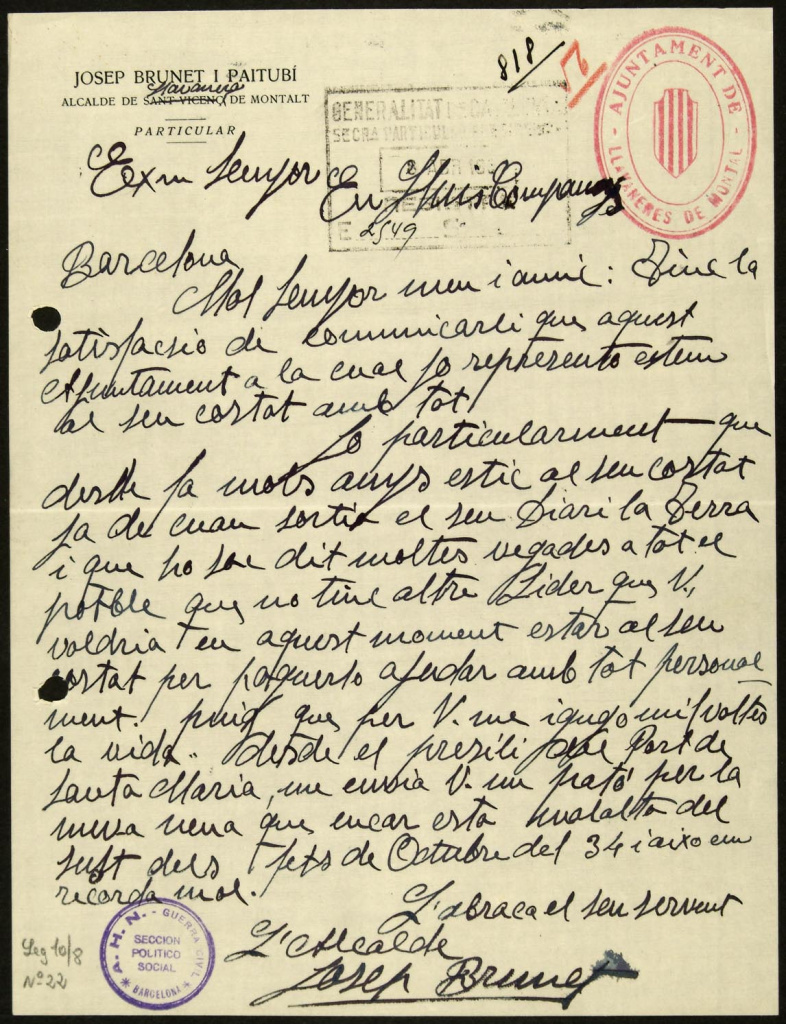 818/
JOSEP BRUNET I PAITUBÍ
Llavaneres
ALCALDE DE SANT VICENÇ DE MONTALT
PARTICULAR
AJUNTAMENT DE
LLAVANERES DE MONTALT
GENERALITAT DE CATALUNYA
2549
Exm Senyor En Lluis Companys
Barcelona
Mol Senyor meu i amic: Tinc la
satisfacsió de comunicarli que aquest
Ajuntament a la cual jo represento estem
al seu costat amb tot.
Jo particularment que
desde fa mols anys estic al seu costat
ja de cuan sortia el seu Diari la Terra
i que ho he dit moltes vegades a tot el
poble que no tinc altre Lider que V,
voldria en aquest moment estar al seu
costat per poguerlo ajudar amb tot personal
ment. puig que per V. me jugo mil voltes
la vida. desde el presili del Port de
Santa Maria, me envia V. un pató per la
meva nena que encar esta malalta del
sust dels fets de Octubre del 34 i aixo em
recorda mol.
L'abraca el seu servent
L'Alcalde
Josep Brunet
A.H.N. - GUERRA CIVIL
SECCION
POLITICO
SOCIAL
* BARCELONA *
Leg 10/8
Nº 22